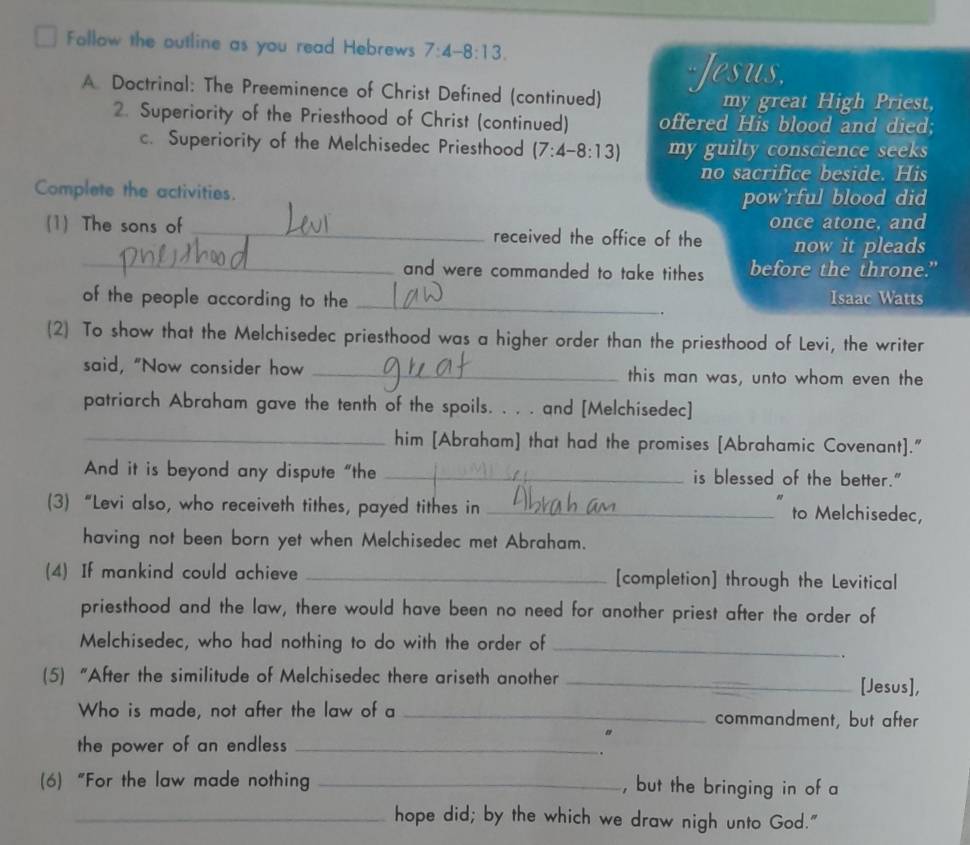 Follow the outline as you read Hebrews 7:4–8:13.
A. Doctrinal: The Preeminence of Christ Defined (continued)
2. Superiority of the Priesthood of Christ (continued)
c. Superiority of the Melchisedec Priesthood (7:4–8:13)
"Jesus,
my great High Priest,
offered His blood and died;
my guilty conscience seeks
no sacrifice beside. His
pow'rful blood did
once atone, and
now it pleads
before the throne."
Isaac Watts
Complete the activities.
(1) The sons of Levi received the office of the
priesthood and were commanded to take tithes
of the people according to the law.
(2) To show that the Melchisedec priesthood was a higher order than the priesthood of Levi, the writer
said, "Now consider how great this man was, unto whom even the
patriarch Abraham gave the tenth of the spoils. . . . and [Melchisedec]
him [Abraham] that had the promises [Abrahamic Covenant]."
And it is beyond any dispute "the is blessed of the better."
(3) "Levi also, who receiveth tithes, payed tithes in Abraham" to Melchisedec,
having not been born yet when Melchisedec met Abraham.
(4) If mankind could achieve [completion] through the Levitical
priesthood and the law, there would have been no need for another priest after the order of
Melchisedec, who had nothing to do with the order of .
(5) "After the similitude of Melchisedec there ariseth another [Jesus],
Who is made, not after the law of a commandment, but after
the power of an endless ."
(6) "For the law made nothing , but the bringing in of a
hope did; by the which we draw nigh unto God."